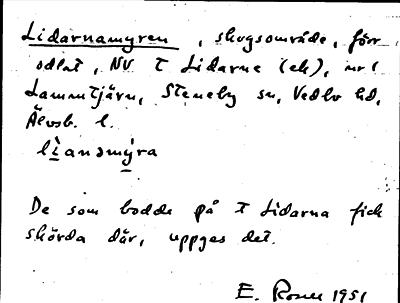 Lidarnamyren, skogsområde, förr
odlat, NV t Lidarne (ek), nr 1
Lammtjärn, Steneby sn, Vedbo hd,
Älvsb. l.
De som bodde på t Lidarna fick
skörda där, uppges det.
E. Rosell 1951